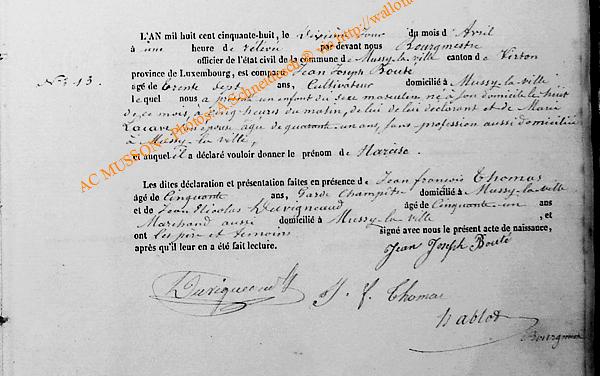 L'AN mil huit cent cinquante-huit, le dixième jour du mois d' Avril
à une heure de relevée par devant nous Bourgmestre
officier de l'état civil de la commune de Mussy-la-ville canton de Virton
N° 13. province de Luxembourg, est comparu Jean Joseph Bouté
âgé de trente sept ans, Cultivateur domicilié à Mussy-la-ville
lequel nous a présenté un enfant du sexe masculin né à son domicile le huit
de ce mois, à cinq heures du matin, de lui déclarant et de Marie
son épouse, âgée de quarante un ans, sans profession aussi domiciliée
à Mussy-la-ville,
et auquel il a déclaré vouloir donner le prénom de Narcise.
Les dites déclaration et présentation faites en présence de Jean françois Thomas
âgé de Cinquante ans, Garde Champêtre domicilié à Mussy-la-ville
et de Jean Nicolas Duvigneaud âgé de Cinquante-un ans
Marchand aussi domicilié à Mussy-la-ville, et
ont les père et témoins signé avec nous le présent acte de naissance,
après qu'il leur en a été fait lecture.
Jean Joseph Bouté
Duvigneaud
J. f. Thomas
hablot
Bourgmestre
AC MUSSON - Photos : A.Schneidesch © via http://wallonia